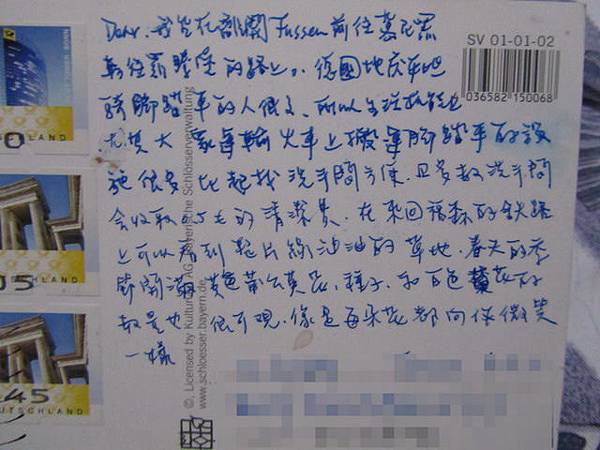 Dear, 我坐在離開Fussen前往慕尼黑
轉往羅騰堡的路上。德國地灰平坦
騎腳踏車的人很多, 所以生活機能也
尤其大眾運輸火車上搬運腳踏車的設
施很多 比起找洗手間方便, 且多數洗手間
會收取0.5七的清潔費, 在來回福森的鐵路
上可以看到整片綠油油的草地, 春天的季
節開滿黃色蒲公英花, 種子, 和白色花的
數量也很可觀, 像是每朵花都向你微笑
一樣
SV 01-01-02
036582 150068
©, Licensed by Kultur AG Bayerische Schlösserverwaltung
www.schloesser.bayern.de
0
DEUTSCHLAND
05
45
DEUTSCHLAND